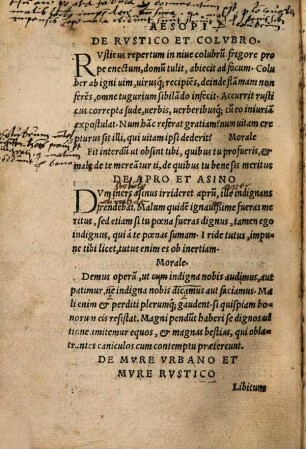 AESOPI
DE RVSTICO ET COLVBRO.
RVsticus repertum in niue colubrũ frigore pro
pe enectum, domũ tulit, abiecit ad focum. Colu
ber ab igni uim, uirusq; recipiẽs, deinde flãmam non
ferẽs, omne tugurium sibilãdo infecit. Accurrit rusti
cus correpta sude, uerbis, uerberibusq; cũ eo iniuriã
expostulat. Num hãc referat gratiam? num uitam ere
pturus sit illi, qui uitam ipsi dederit? Morale
Fit interdũ ut obsint tibi, quibus tu profueris, &
malè de te mereãtur ii, de quibus tu bene sis meritus
DE APRO ET ASINO
DVm iners asinus irrideret aprũ, ille indignans
frendebat. Malum quidẽ ignauissime fueras me
ritus, sed etiam si tu pœna fueras dignus, tamen ego
indignus, qui à te pœnas sumam. I ride tutus, impu-
ne tibi licet, tutus enim es ob inertiam.
Morale.
Demus operã, ut cum indigna nobis audimus, aut
patimur, ne indigna nobis dicamus aut faciamus. Ma
li enim & perditi plerumq; gaudent si quispiam bo
norum eis resistat. Magni pendũt haberi se dignos ul
tione. imitemur equos, & magnas bestias, qui obla-
trantes caniculos cum contemptu prætereunt.
DE MVRE VRBANO ET
MVRE RVSTICO
Libitum